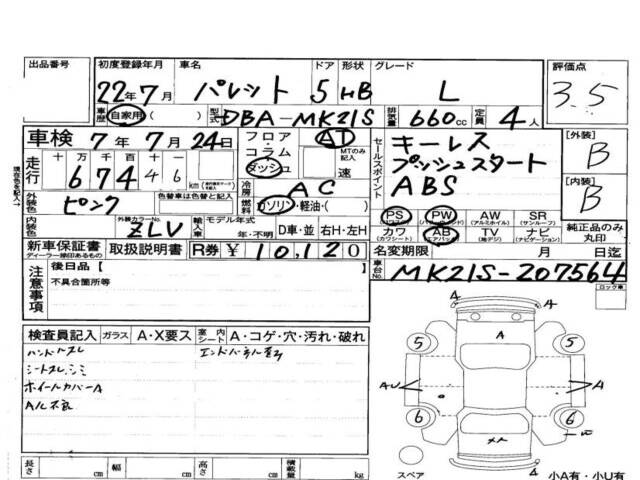 出品番号 初度登録年月 車名 ドア 形状 グレード 評価点
22年7月 パレット 5 HB L 3.5
車歴 自家用 ( ) 型式 DBA-MK21S 排気量 660cc 定員 4人
車検 7年7月24日 フロア・コラム・ダッシュ AT MTのみ記入 速 セールスポイント キーレス [外装]
プッシュスタート B
ABS [内装]
B
走行 十 万 千 百 十 一
674 km 冷房 AC
外装色 ピンク 色替車は色替と記入 燃料 ガソリン・軽油・( )
現在色を記入↑
PS PW AW SR
(パワステ) (パワーウィンドウ) (アルミホイル) (サンルーフ)
カワ AB TV ナビ 純正品のみ丸印
(カワシート) (エアバック) (地デジ) (ナビゲーション)
内装色 外装カラーNo. ZLV 輸入車 モデル年式 年・不明 D車・並 右H・左H
新車保証書 取扱説明書 R券 ¥10,120 名変期限 月 日迄
ディーラー捺印あるもの
車台No. MK21S-207564
ロック車
注意事項 後日品 [ ]
不具合箇所等
検査員記入 ガラス A・X要ス 室内シート A・コゲ・穴・汚れ・破れ
ハンドルスレ
シートスレ,シミ
ホイールカバーA
A A
A
5 5
AU A
6 6
スペア 小A有・小U有
長さ cm 幅 cm 高さ cm 積載量 kg